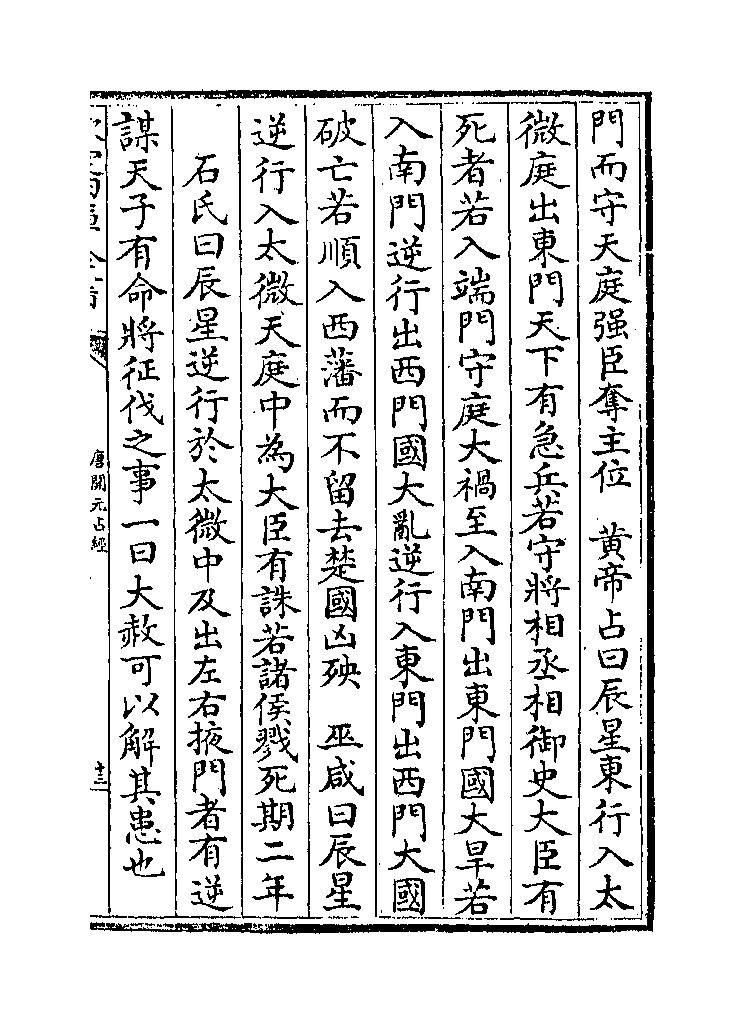 門而守天庭强臣奪主位　黄帝占曰辰星東行入太
微庭出東門天下有急兵若守將相丞相御史大臣有
死者若入端門守庭大禍至入南門出東門國大旱若
入南門逆行出西門國大亂逆行入東門出西門大國
破亡若順入西藩而不留去楚國凶殃　巫咸曰辰星
逆行入太微天庭中為大臣有誅若諸侯戮死期二年
石氏曰辰星逆行於太微中及出左右掖門者有逆
謀天子有命將征伐之事一曰大赦可以解其患也
唐開元占經
十三